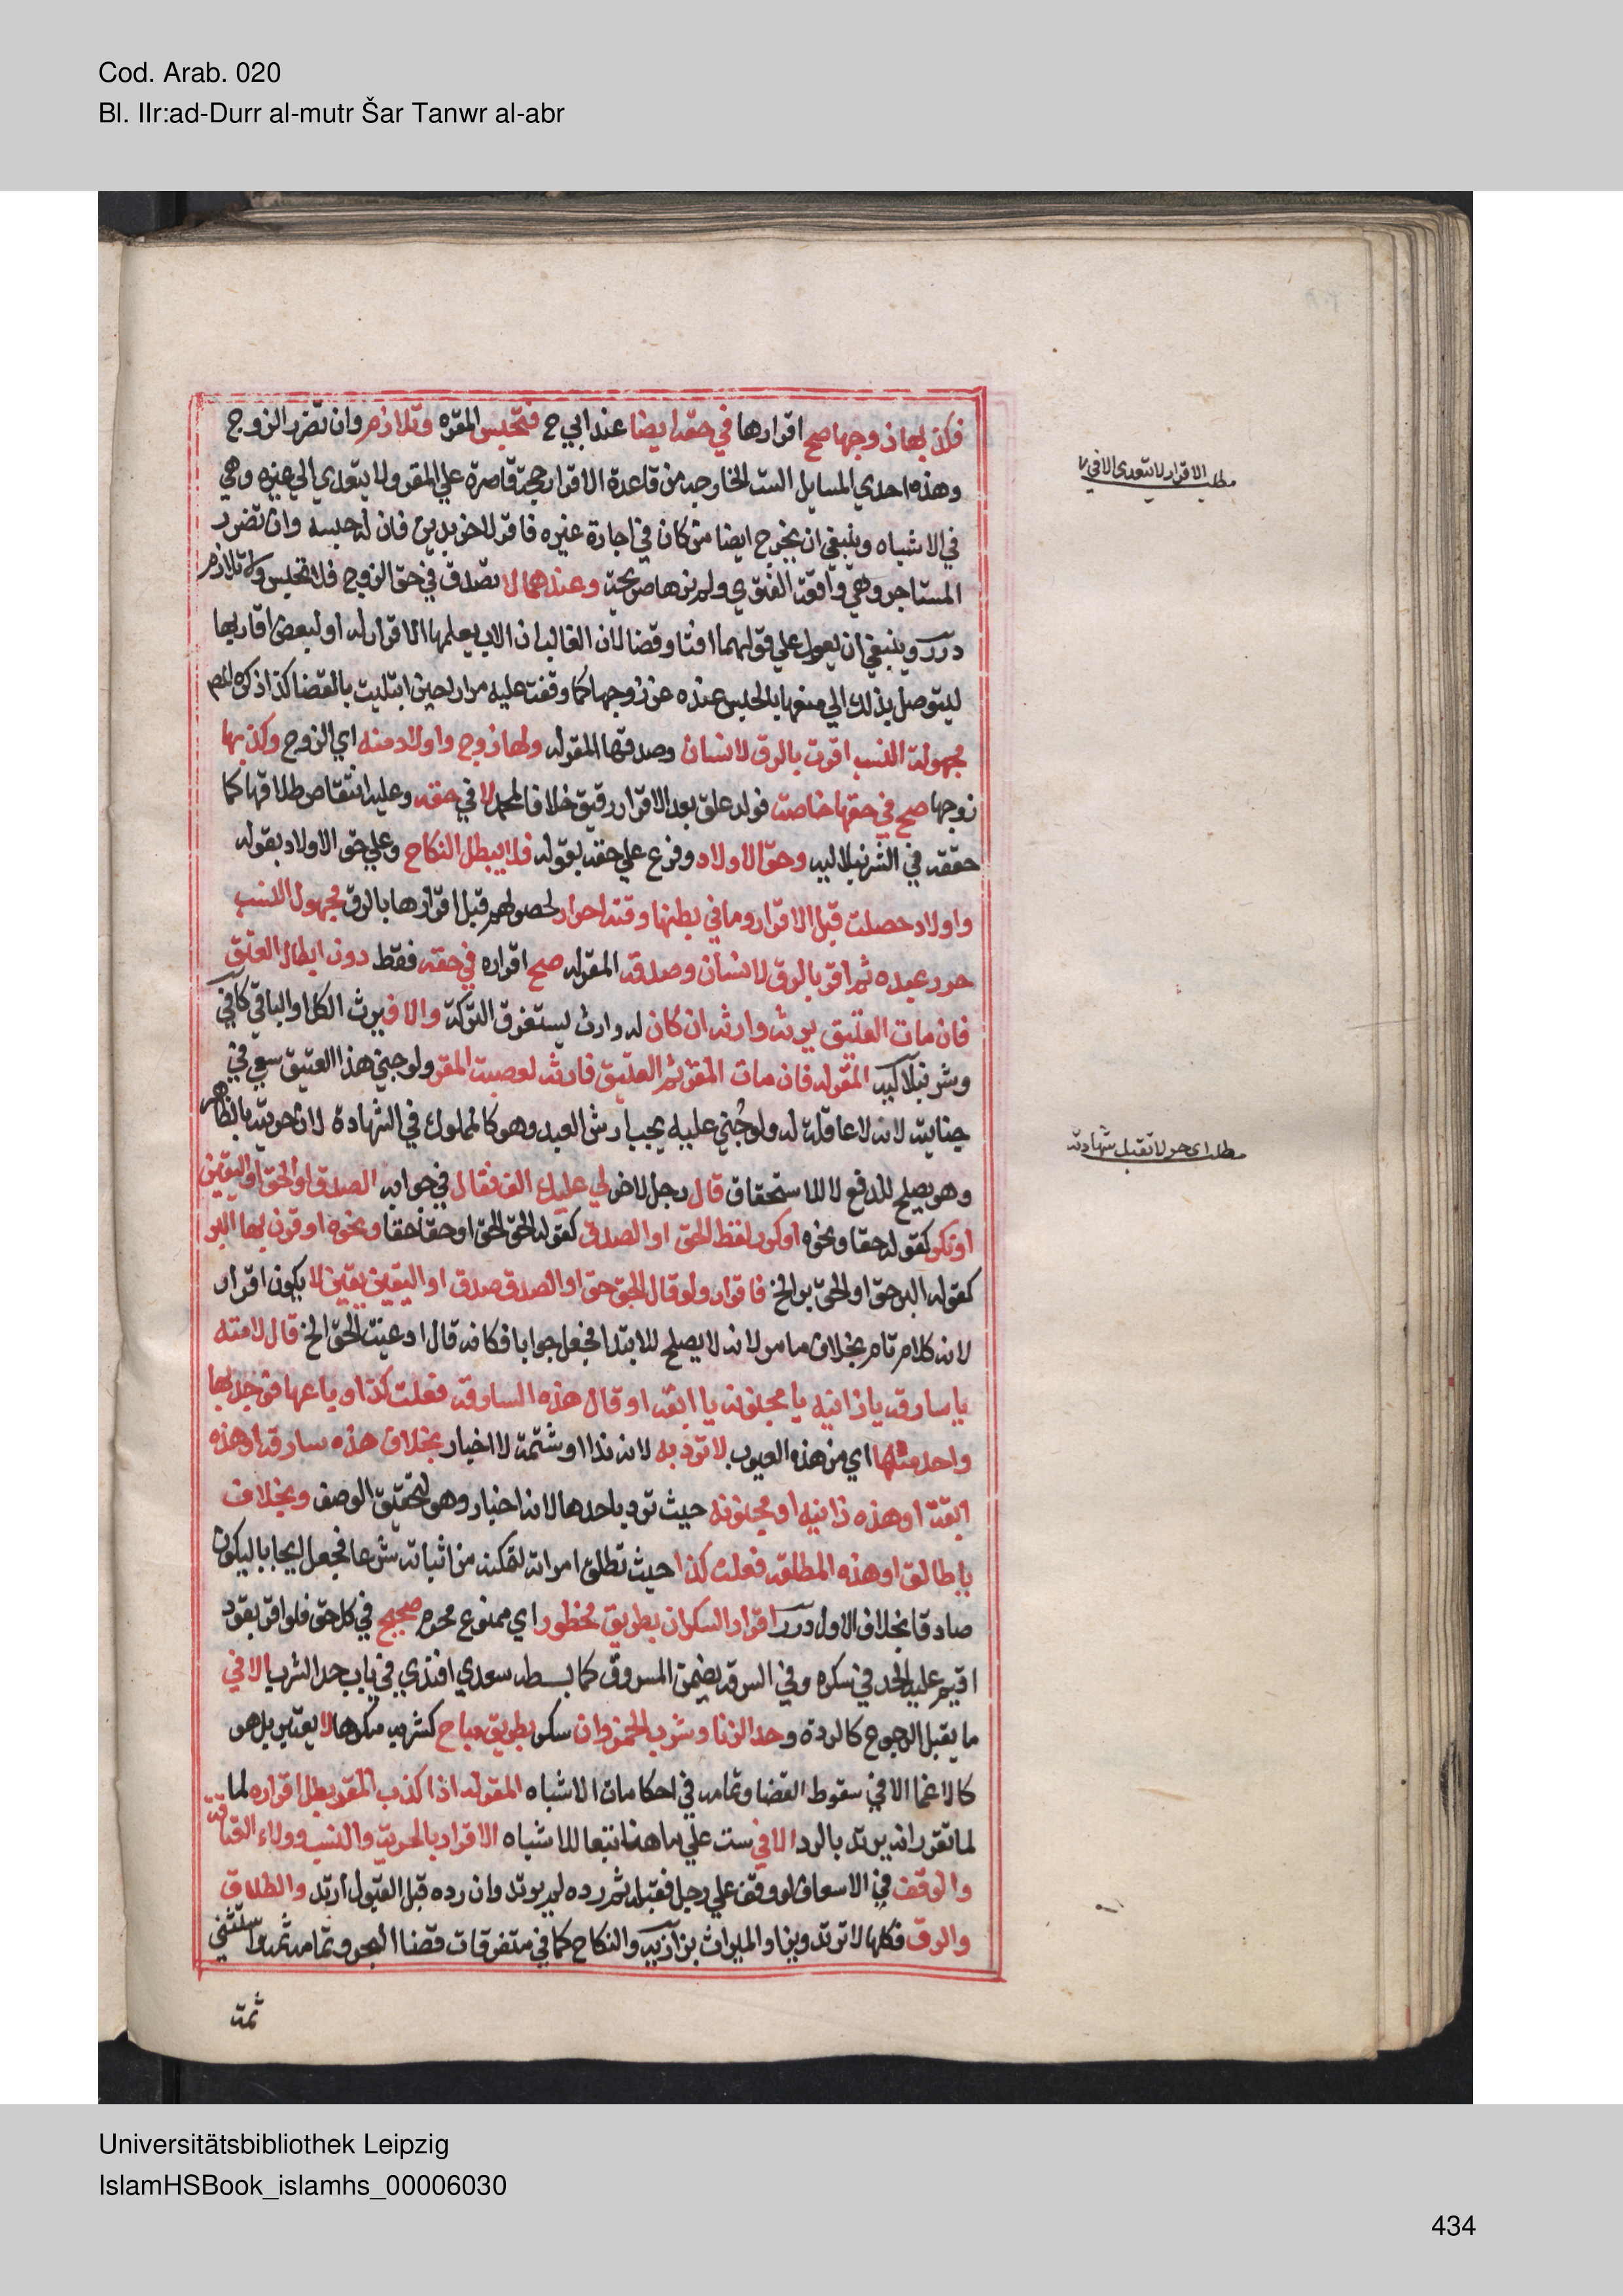 Cod. Arab. 020
Bl. IIr:ad-Durr al-mutr Šar Tanwr al-abr
فكذبها زوجها صح اقرارها في حقه ايضا عند ابي ح فتحبس المقره وتلازم وان تضرر الزوج
وهذه احدي المسايل الست الخارجه من قاعدة الاقرار حجة قاصرة علي المقر ولا يتعدي الي غيره وهي
في الاشباه وينبغي ان يخرج ايضا من كان في اجارة غيره فاقر لاخر بدين فان له حبسه وان تضرر
المستاجر وهي واقعة الفتوي ولم نرها صريحة وعندهما لا تصدق في حق الزوج فلا تحبس ولا تلازم
درر وينبغي ان يعول علي قولهما افتا وقضا لان الغالب ان الاب يعلمها الاقرار له او لبعض اقاربها
ليتوصل بذلك الي منعها بالحبس عنده عن زوجها كما وقفت عليه مرارا حين ابتليت بالقضا كذا ذكره المص
مجهولة النسب اقرت بالرق لانسان وصدقها المقر له ولها زوج واولاد منه اي الزوج وكذبها
زوجها صح في حقها خاصة فولد علق بعد الاقرار رقيق خلافا لمحمد لا في حقه وعليه انتقاص طلاقها كما
حققه في الشرنبلاليه وحق الاولاد وفرع علي حقه بقوله فلا يبطل النكاح وعلي حق الاولاد بقوله
واولاد حصلت قبل الاقرار وما في بطنها وقته احرار لحصولهم قبل اقرارها بالرق مجهول النسب
حرر عبده ثم اقر بالرق لانسان وصدقه المقر له صح اقراره في حقه فقط دون ابطال العتق
فان مات العتيق يرثه وارثه ان كان له وارث يستغرق التركة والا فيرث الكل او الباقي كافي
وشرنبلاليه المقر له فان مات المقر ثم العتيق فارثه لعصبة المقر ولو جني هذا العتيق سعي في
جنايته لانه لا عاقلة له ولو جُني عليه يجب ارش العبد وهو كالمملوك في الشهادة لان حريته بالظاهر
وهو يصلح للدفع لا للاستحقاق قال رجل لاخر لي عليك الف فقال في جوابه الصدق او الحق او اليقين
او نكر كقوله حقا ونحوه او كرر لفظ الحق او الصدق كقوله الحق الحق او حقا حقا ونحوه او قرن بها البر
كقوله البر حق او الحق بر الخ فاقرار ولو قال الحق حق او الصدق صدق او اليقين يقين لا يكون اقرار
لانه كلام تام بخلاف ما مر لانه لا يصلح للابتدا فجعل جوابا فكانه قال ادعيت الحق الخ قال لامته
يا سارقه يا زانيه يا مجنونه يا ابقه او قال هذه السارقه فعلت كذا وباعها فوجد بها
واحد منها اي من هذه العيوب لا ترد به لانه ندا او شتمة لا اخبار بخلاف هذه سارقه او هذه
ابقة او هذه زانيه او مجنونه حيث ترد باحدها لانه اخبار وهو لتحقيق الوصف وبخلاف
يا طالق او هذه المطلقه فعلت كذا حيث تطلق امراته لتمكنه من اثباته شرعا فجعل ايجابا ليكون
صادقا بخلاف الاول درر اقرار السكران بطريق محظور اي ممنوع محرم صحيح في كل حق فلو اقر بقود
اقيم عليه الحد في سكره وفي السرقه يضمن المسروق كما بسطه سعدي افندي في باب حد الشرب الا في
ما يقبل الرجوع كالردة وحد الزنا وشرب الخمر وان سكر بطريق مباح كشربه مكرها لا يعتبر بل هو
كالاغما الا في سقوط القضا وتمامه في احكامات الاشباه المقر له اذا كذب المقر بطل اقراره لما
لما تقرر انه يرتد بالرد الا في ست علي ما هنا تبعا للاشباه الاقرار بالحرية والنسب وولاء العتاقة
والوقف في الاسعاف لو وقف علي رجل فقبله ثم رده لم يرتد وان رده قبل القبول ارتد والطلاق
والرق فكلها لا ترتد ويزاد الميراث بزازيه والنكاح كما في متفرقات قضا البحر وتمامه ثمه واستثني
ثمة
مطلب الاقرار لا يتعدى الا في ٧
مطلب اى حر لا تقبل شهادته
Universitätsbibliothek Leipzig
IslamHSBook_islamhs_00006030
434